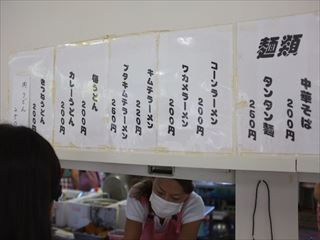 麺類
中華そば
200円
タンタン麺
250円
コーンラーメン
200円
ワカメラーメン
200円
キムチラーメン
220円
ブタキムチラーメン
250円
梅うどん
200円
カレーうどん
220円
きつねうどん
200円
肉うどん